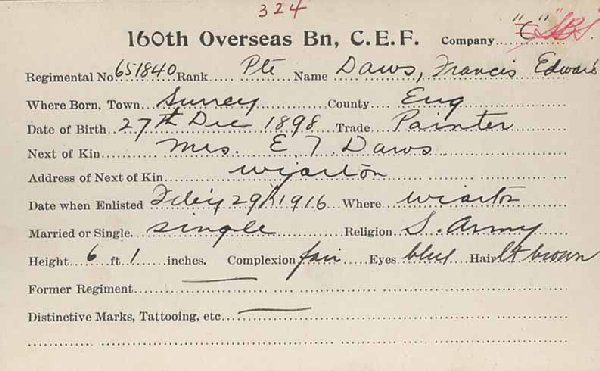 324
160th Overseas Bn, C.E.F. Company "C"
Regimental No 651840 Rank Pte Name Daws, Francis Edward
Where Born, Town Surrey County Eng
Date of Birth 27th Dec 1898 Trade Painter
Next of Kin Mrs. E T Daws
Address of Next of Kin Wiarton
Date when Enlisted Feb'y 29th 1916 Where Wiarton
Married or Single single Religion S. Army
Height 6 ft 1 inches. Complexion fair Eyes blue Hair lt brown
Former Regiment
Distinctive Marks, Tattooing, etc